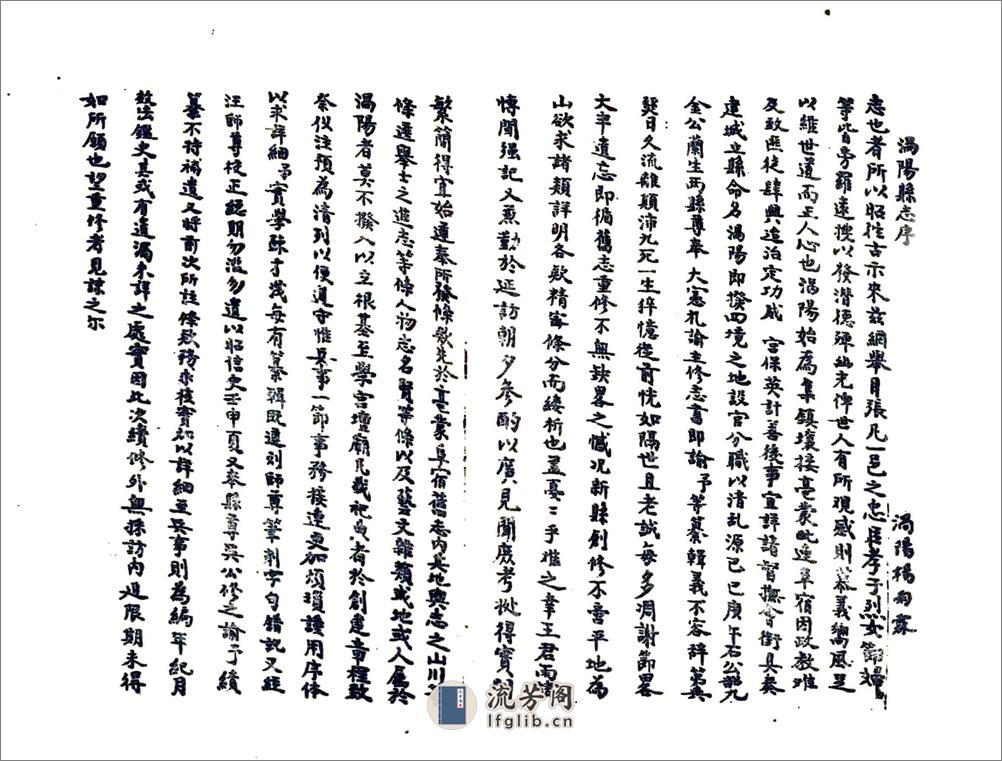 渦陽縣志序
渦陽楊雨霖
志也者所以昭往古示來茲綱舉目張凡一邑之忠臣孝子烈女節婦
等皆旁羅遠搜以發潛德幽光俾世人有所觀感則慕義嚮風足
以維世道而正人心也渦陽始為集鎮壤接亳蒙毗連阜宿因政教難
及致匪徒肆興迨治定功成 宮保英計善後事宜詳諸督撫會銜具奏
建城立縣命名渦陽即撥四境之地設官分職以清乱源己巳庚午石公誥九
金公蘭生兩縣尊奉大憲札諭主修志書即諭予等纂輯義不容辭第兵
燹日久流離顛沛九死一生猝憶從前恍如隔世且老誠每多凋謝節畧
大半遺忘即循舊志重修不無缺畧之憾况新縣創修不啻平地為
山欲求諸類詳明各欵精密條分而縷析也盖戞戞乎難之幸王君雨
博聞强記又兼勤於延訪朝夕參酌以廣見聞庶考批得實
繁簡得宜始遵奉所發條欵先於亳蒙阜宿舊志内其地輿志之山川
條選舉士之進志等條人物志名賢等條以及藝文雜類或地或人屬於
渦陽者莫不撥入以立根基至學宮壇廟凡載祀典者於創建章程致
祭仪注預為清列以便遵守惟兵事一節事務接連更加煩瑣謹用字体
以求詳細予實學疎才淺每有纂輯既遵刘師尊筆削字句錯訛又經
汪師尊校正總期勿濫勿遺以昭信史壬申夏又奉縣尊吳公修之諭予續
纂不特補遺又將前次所註條欵務求核實以詳細至兵事則為編年紀月
鑑史其或有遺漏未詳之處實因此次續修外無採訪内迫限期未得
如所願也望重修者見諒之尔
流芳阁
lfglib.cn